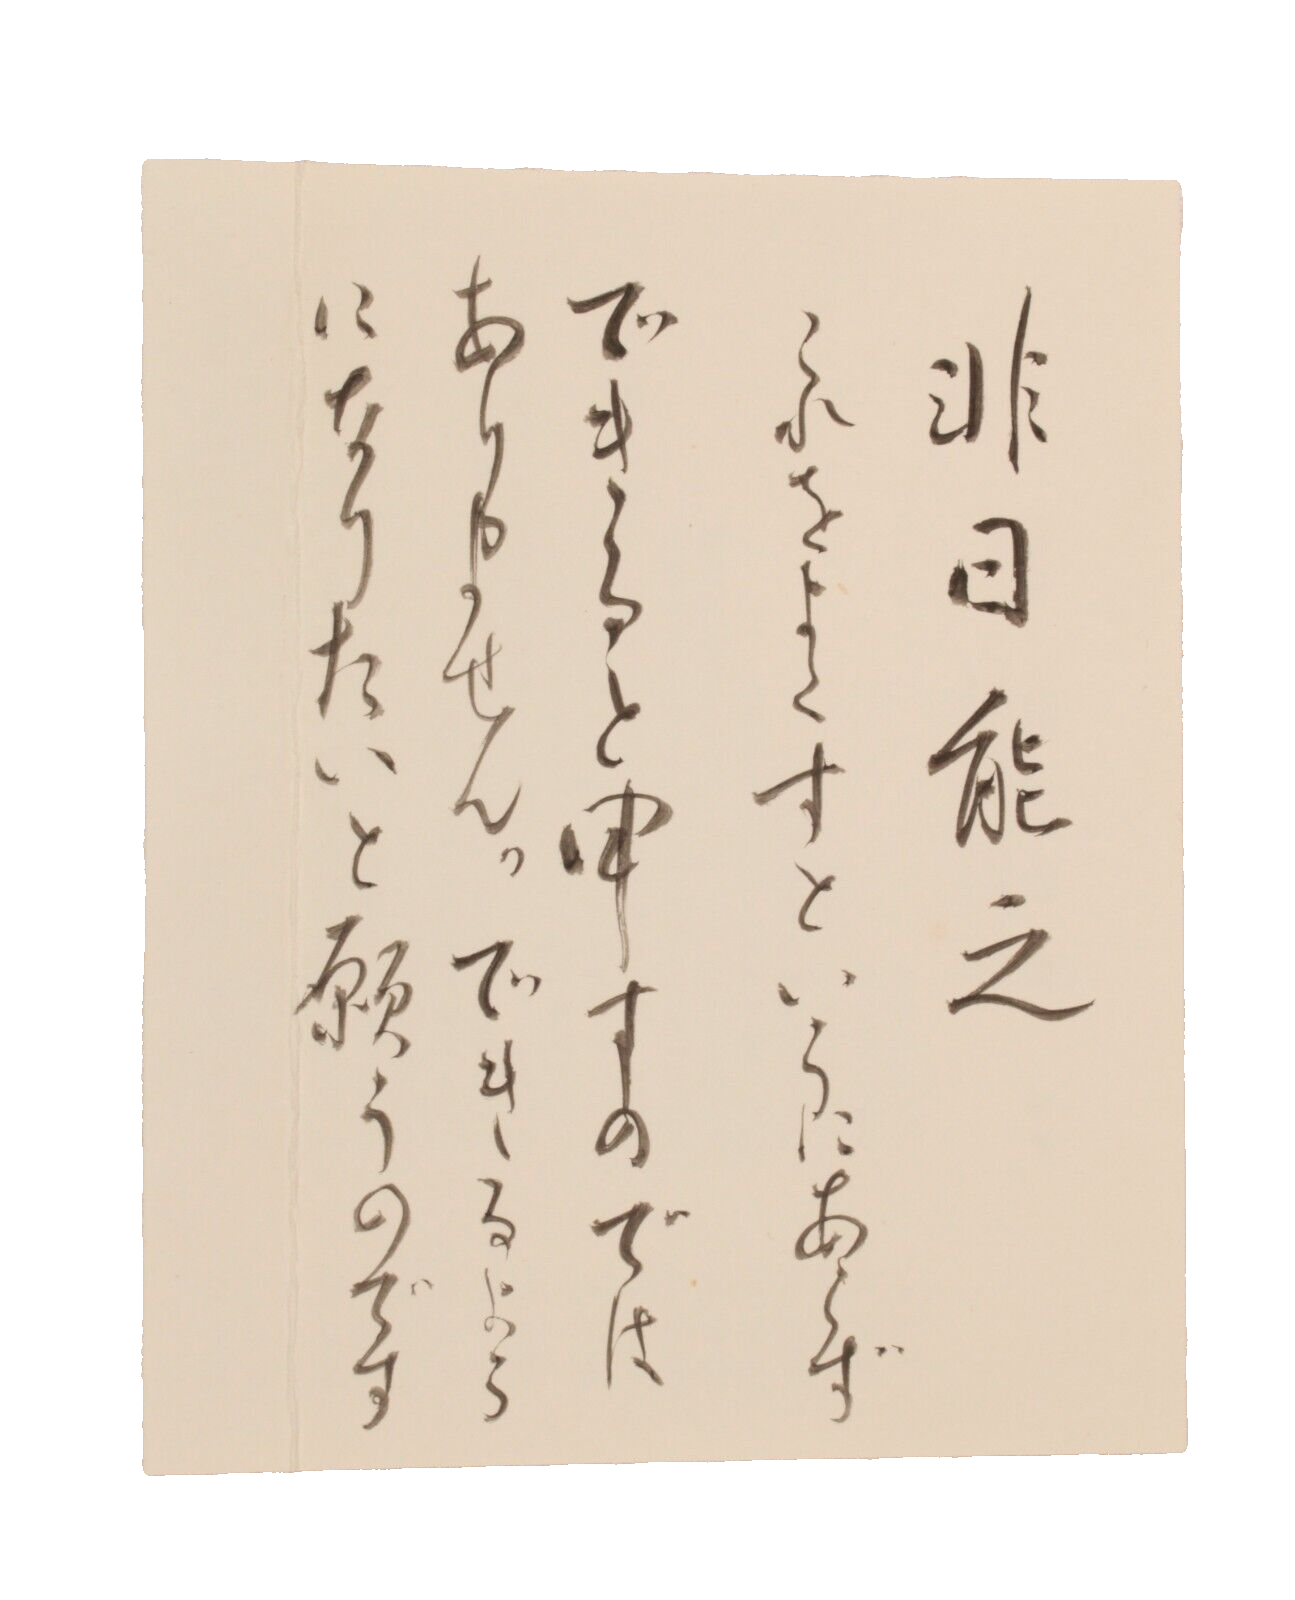 非曰能之
これをよくすというにあらず
できると申すのでは
ありません。できるよう
になりたいと願うのです